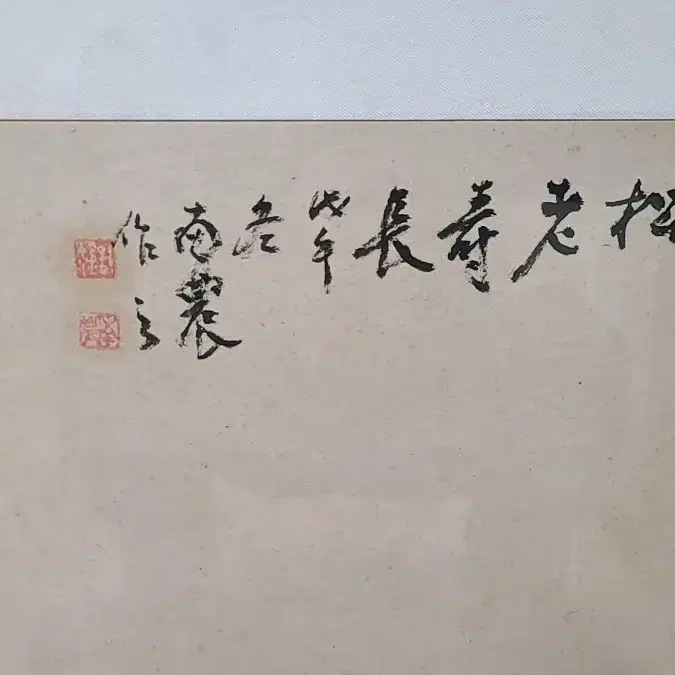 松老
壽長
戊午
冬
南農
作之